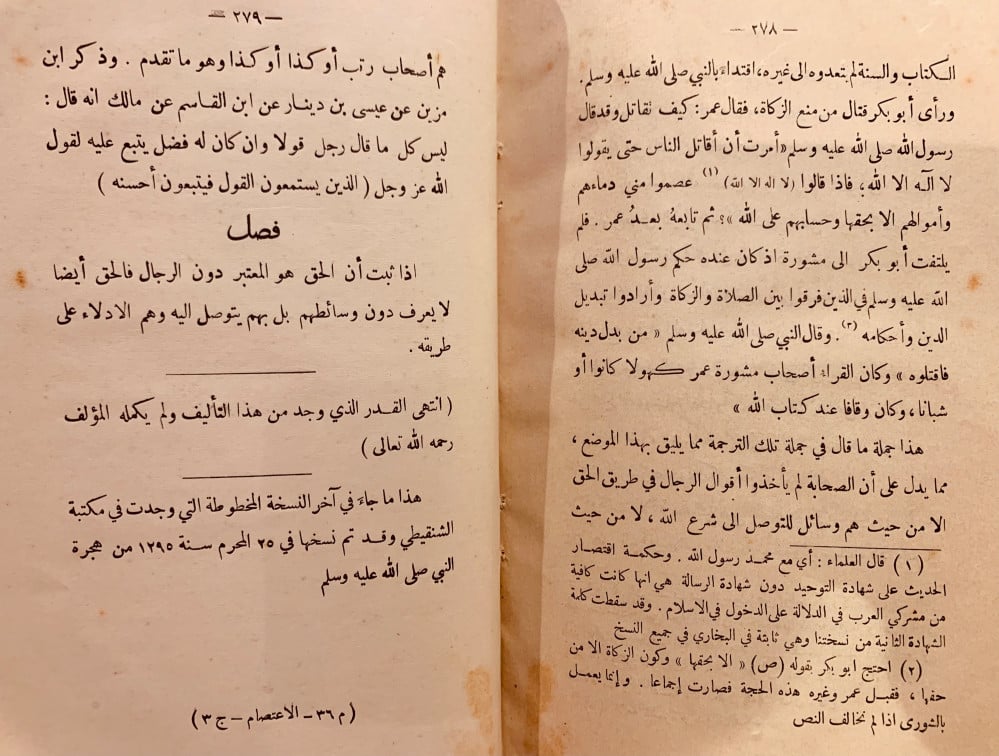 — ٢٧٨ —
الكتاب والسنة لم يتعدوه الى غيره، اقتداء بالنبي صلى الله عليه وسلم.
ورأى أبو بكر قتال من منع الزكاة، فقال عمر: كيف نقاتل وقد قال
رسول الله صلى الله عليه وسلم «أمرت أن أقاتل الناس حتى يقولوا
لا آله الا الله، فاذا قالوا (لا اله الا الله) (١) عصموا مني دماءهم
وأموالهم الا بحقها وحسابهم على الله»؟ ثم تابعهُ بعدُ عمر . فلم
يلتفت أبو بكر الى مشورة اذ كان عنده حكم رسول الله صلى
الله عليه وسلم في الذين فرقوا بين الصلاة والزكاة وأرادوا تبديل
الدين وأحكامه (٢). وقال النبي صلى الله عليه وسلم « من بدل دينه
فاقتلوه » وكان القراء أصحاب مشورة عمر كهولا كانوا أو
شبانا، وكان وقافا عند كتاب الله »
هذا جملة ما قال في جملة تلك الترجمة مما يليق بهذا الموضع،
مما يدل على أن الصحابة لم يأخذوا أقوال الرجال في طريق الحق
الا من حيث هم وسائل للتوصل الى شرع الله ، لا من حيث
(١) قال العلماء : أي مع محمد رسول الله . وحكمة اقتصار
الحديث على شهادة التوحيد دون شهادة الرسالة هي انها كانت كافية
من مشركي العرب في الدلالة على الدخول في الاسلام . وقد سقطت كلمة
الشهادة الثانية من نسختنا وهي ثابتة في البخاري في جميع النسخ
(٢) احتج ابو بكر بقوله (ص) « الا بحقها » وكون الزكاة الا من
حقها ، فقبل عمر وغيره هذه الحجة فصارت إجماعا . وإنما يعمل
بالشورى اذا لم تخالف النص
— ٢٧٩ —
هم أصحاب رتب أو كذا أو كذا وهو ما تقدم . وذكر ابن
مزين عن عيسى بن دينار عن ابن القاسم عن مالك انه قال :
ليس كل ما قال رجل قولا وان كان له فضل يتبع عليه لقول
الله عز وجل ( الذين يستمعون القول فيتبعون أحسنه )
فصل
اذا ثبت أن الحق هو المعتبر دون الرجال فالحق أيضا
لا يعرف دون وسائطهم بل بهم يتوصل اليه وهم الادلاء على
طريقه .
( انتهى القدر الذي وجد من هذا التأليف ولم يكمله المؤلف
رحمه الله تعالى )
هذا ما جاء في آخر النسخة المخطوطة التي وجدت في مكتبة
الشنقيطي وقد تم نسخها في ٢٥ المحرم سنة ١٢٩٥ من هجرة
النبي صلى الله عليه وسلم
( م ٣٦ - الاعتصام - ج ٣ )